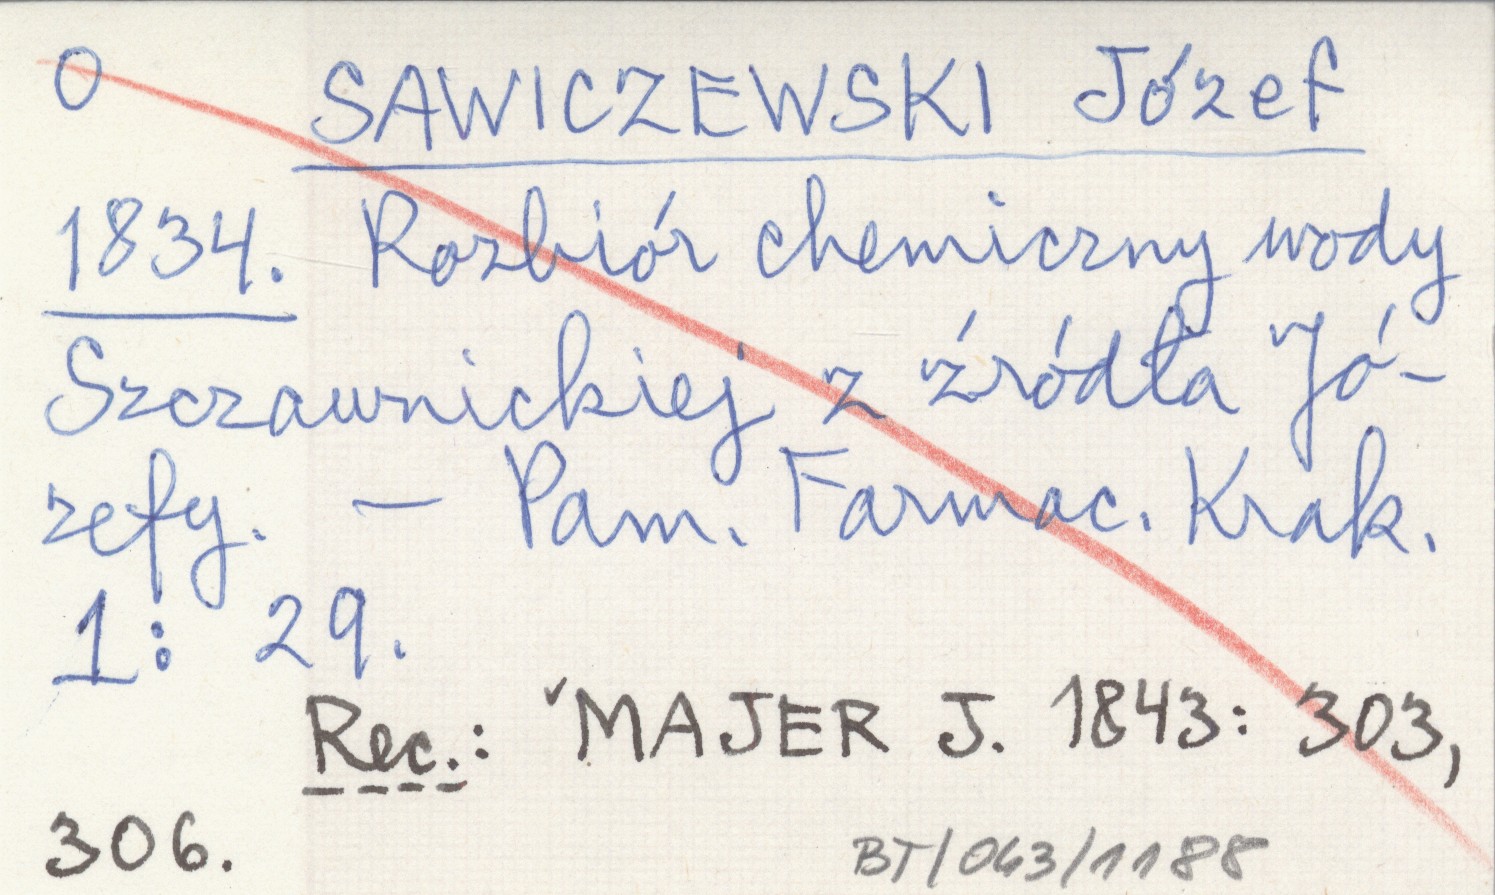 O SAWICZEWSKI Józef
1834. Rozbiór chemiczny wody
Szczawnickiej z źródła Jó-
zefy. — Pam. Farmac. Krak.
1: 29.
Rec.: ✓MAJER J. 1843: 303,
306.
BT/043/1188